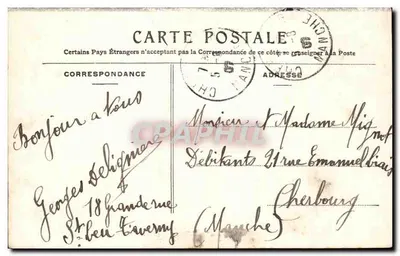 CARTE POSTALE
Certains Pays Étrangers n'acceptant pas la Correspondance de ce côté, se renseigner à la Poste
CORRESPONDANCE
ADRESSE
MANCHE
MANCHE
CARTE-POSTALE
Bonjour a Vous
Georges
18 Grande rue
St Leu-Taverny
Monsieur et Madame Mignot
Débitants 21 rue Emanuel Liais
Cherbourg
(Manche)